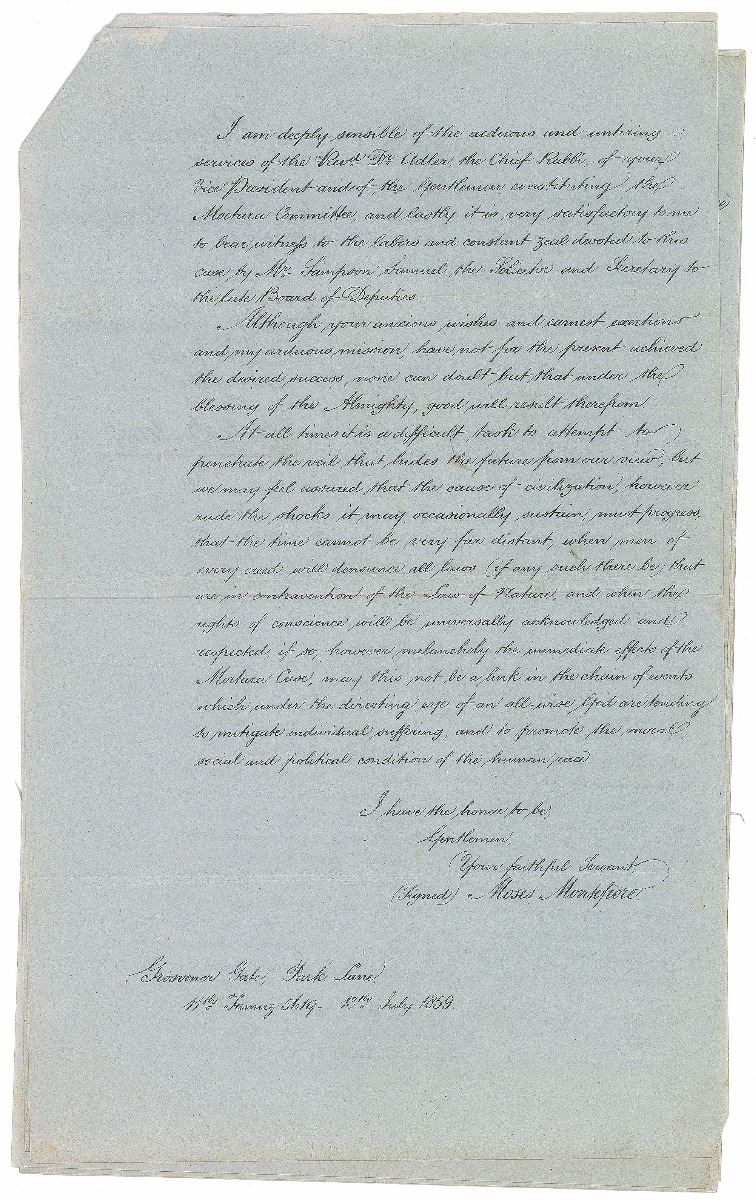 I am deeply sensible of the arduous and untiring
services of the Revd. Dr. Adler, the Chief Rabbi, of your
Vice President and of the Gentlemen constituting the
Mortara Committee, and lastly it is very satisfactory to me
to bear witness to the labors and constant zeal devoted to this
case by Mr. Sampson Samuel, the Solicitor and Secretary to
the late Board of Deputies.
Although your anxious wishes and earnest exertions
and my arduous mission, have not for the present achieved
the desired success, none can doubt but that under the
blessing of the Almighty, good will result therefrom
At all times it is a difficult task to attempt to
penetrate the veil that hides the future from our view, but
we may feel assured that the cause of civilization, however
rude the shocks it may occasionally sustain, must progress,
that the time cannot be very far distant, when men of
every creed will denounce all laws (if any such there be) that
are in contravention of the Law of Nature, and when the
rights of conscience will be universally acknowledged and
respected, if so, however melancholy the immediate effects of the
Mortara Case, may this not be a link in the chain of events
which under the directing eye of an all-wise God are tending
to mitigate individual suffering, and to promote the moral,
social and political condition of the human race
I have the honor to be,
Gentlemen
Your faithful Servant,
(Signed) Moses Montefiore
Grosvenor Gate, Park Lane,
5619 July 1859.